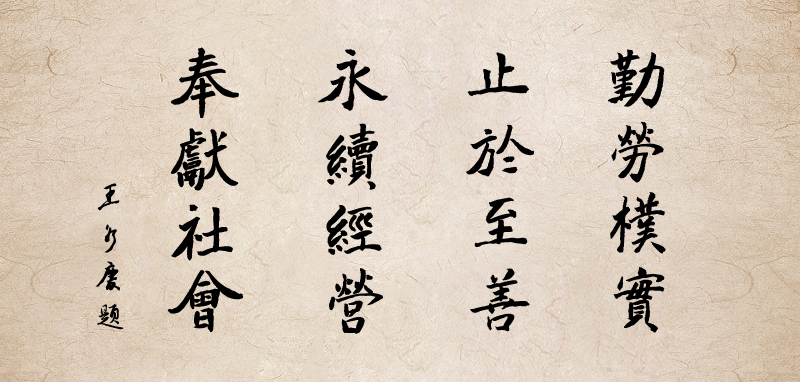 勤勞樸實
止於至善
永續經營
奉獻社會
王永慶題